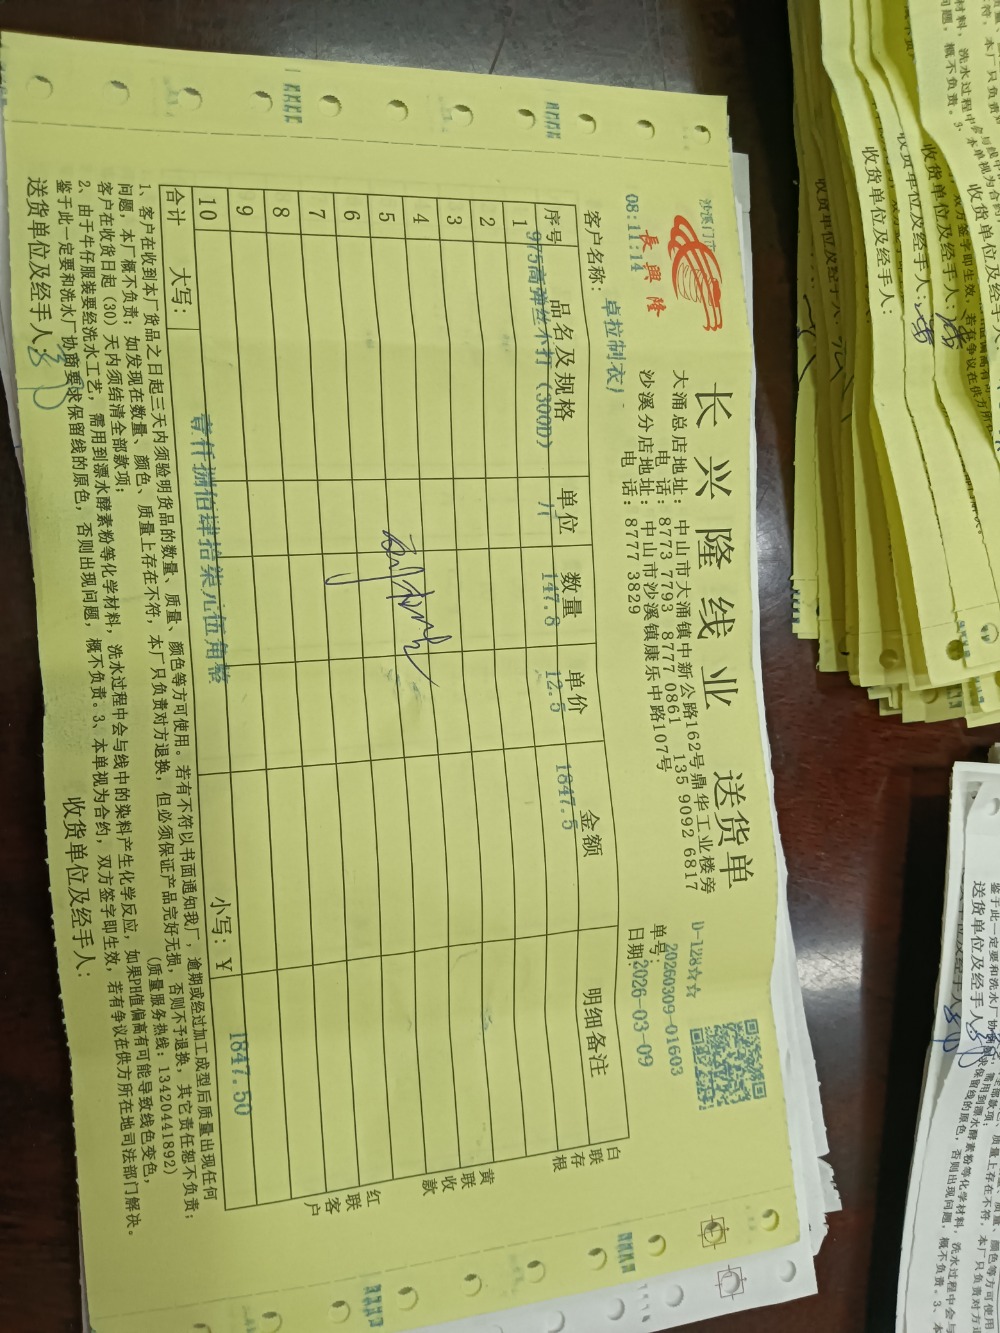 长兴隆线业 送货单
沙溪门市
長興隆
08:11:14
大涌总店地址：中山市大涌镇中新公路162号鼎华工业楼旁
电话：8773 7793 8777 0861 135 9092 6817
沙溪分店地址：中山市沙溪镇康乐中路107号
电话：8777 3829
D-128☆☆
单号：20260309-01603
日期：2026-03-09
客户名称：卓拉制衣厂
序号 品名及规格 单位 数量 单价 金额 明细备注
1 975高弹丝不打（300D） 个 147.8 12.5 1847.5
2
3
4
5
6
7
8
9
10
合计 大写：壹仟捌佰肆拾柒元伍角整 小写：￥ 1847.50
白联存根
黄联收款
红联客户
1、客户在收到本厂货品之日起三天内须验明货品的数量、质量、颜色等方可使用。若有不符以书面通知我厂，逾期或经过加工成型后质量出现任何
问题，本厂概不负责；如发现在数量、颜色、质量上存在不符，本厂只负责对方退换，但必须保证产品完好无损，否则不予退换，其它责任恕不负责；
客户在收货日起（30）天内须结清全部款项； （质量服务热线：13420441892）
2、由于牛仔服装要经洗水工艺，需用到漂水酵素粉等化学材料，洗水过程中会与线中的染料产生化学反应，如果PH值偏高有可能导致线色变色，
鉴于此一定要和洗水厂协商要求保留线的原色，否则出现问题，概不负责。3、本单视为合约，双方签字即生效，若有争议在供方所在地司法部门解决。
送货单位及经手人： 收货单位及经手人：
收货单位及经手人：
收货单位及经手人：
收货单位及经手人：
送货单位及经手人